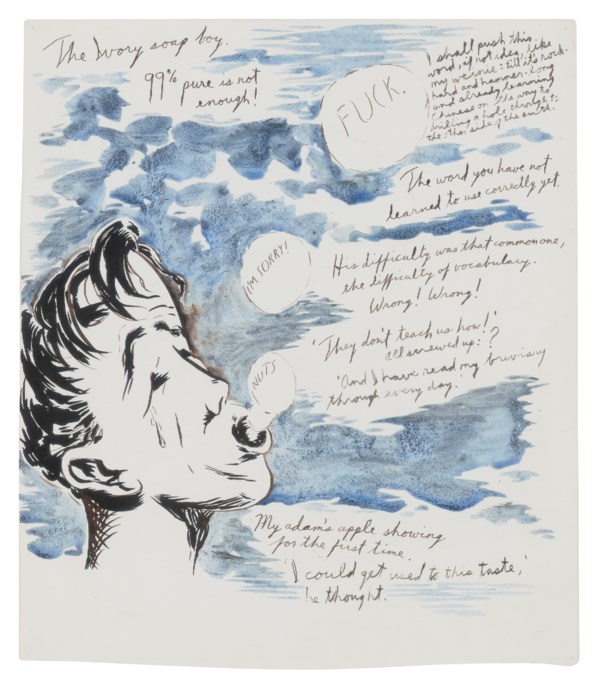 The Ivory soap boy.
99% pure is not
enough!
FUCK.
I shall push this
word, if not idea, like
my weenie: till it's rock-
hard and hammer-long
and already learning
Chinese on the way to
drilling a hole through to
the other side of the earth.
The word you have not
learned to use correctly yet.
I'M SORRY!
His difficulty was that common one,
the difficulty of vocabulary.
Wrong! Wrong!
NUTS
'They don't teach us how!'
all screwed up: ?
'And I have read my breviary
through every day.'
My adam's apple showing
for the first time.
'I could get used to this taste,'
he thought.